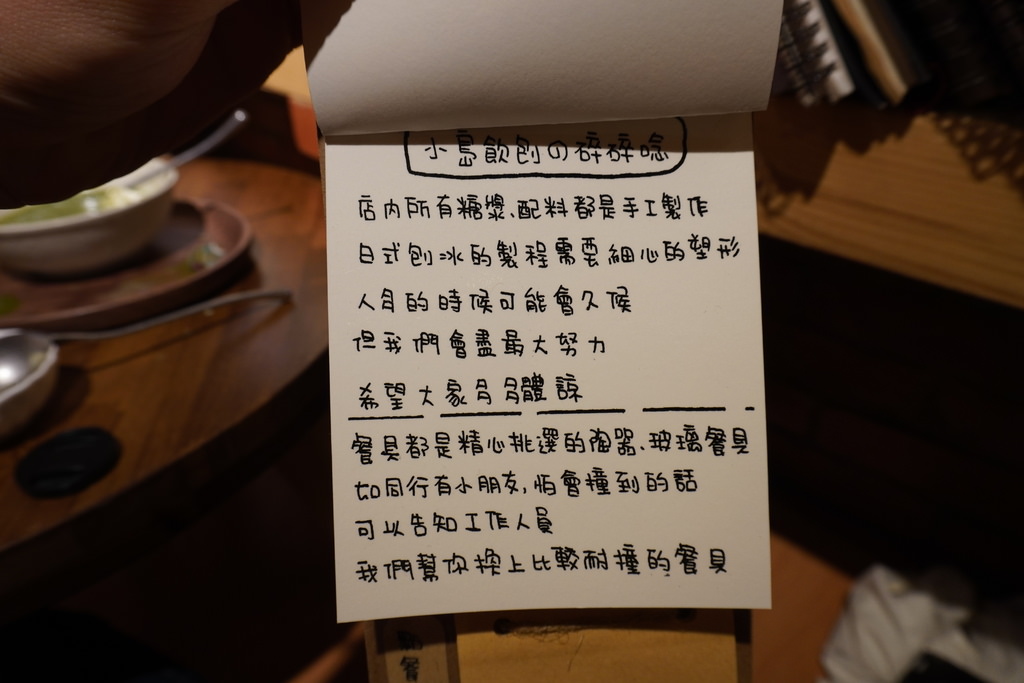 小島飲刨の碎碎唸
店內所有糖漿、配料都是手工製作
日式刨冰的製程需要細心的塑形
人多的時候可能會久候
但我們會盡最大努力
希望大家多多體諒
餐具都是精心挑選的陶器、玻璃餐具
如同行有小朋友,怕會撞到的話
可以告知工作人員
我們幫你換上比較耐撞的餐具
點餐